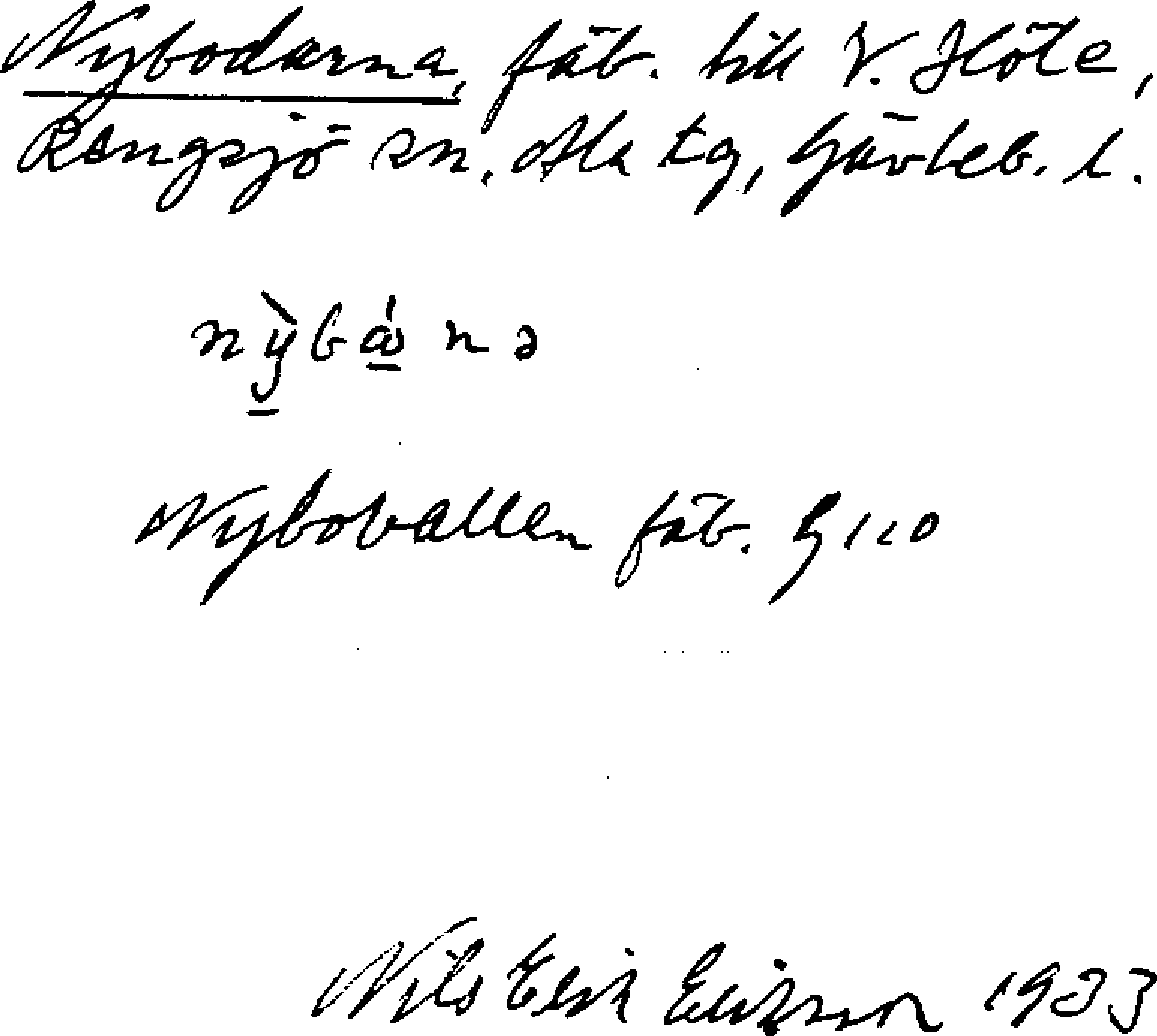 Nybodarna, fäb. till V. Höle,
Rengsjö sn. Ala tg, Gävleb. l.
nỳbá̱ nə
Nybovallen fäb. G 110
Nils Erik Erikson 1933